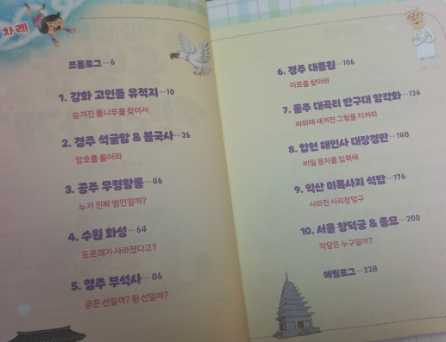 차례
프롤로그…6
1. 강화 고인돌 유적지…10
숨겨진 돌나무를 찾아서
2. 경주 석굴암 & 불국사…26
암호를 풀어라
3. 공주 무령왕릉…46
누가 진짜 범인일까?
4. 수원 화성…64
도르래가 사라졌다고?
5. 영주 부석사…86
굽은 선일까? 휜 선일까?
6. 경주 대릉원…106
미로를 찾아라
7. 울주 대곡리 반구대 암각화…126
바위에 새겨진 그림을 지켜라
8. 합천 해인사 대장경판…148
비밀 문자를 입력해
9. 익산 미륵사지 석탑…176
사라진 사리장엄구
10. 서울 창덕궁 & 종묘…200
악당은 누구일까?
에필로그…228